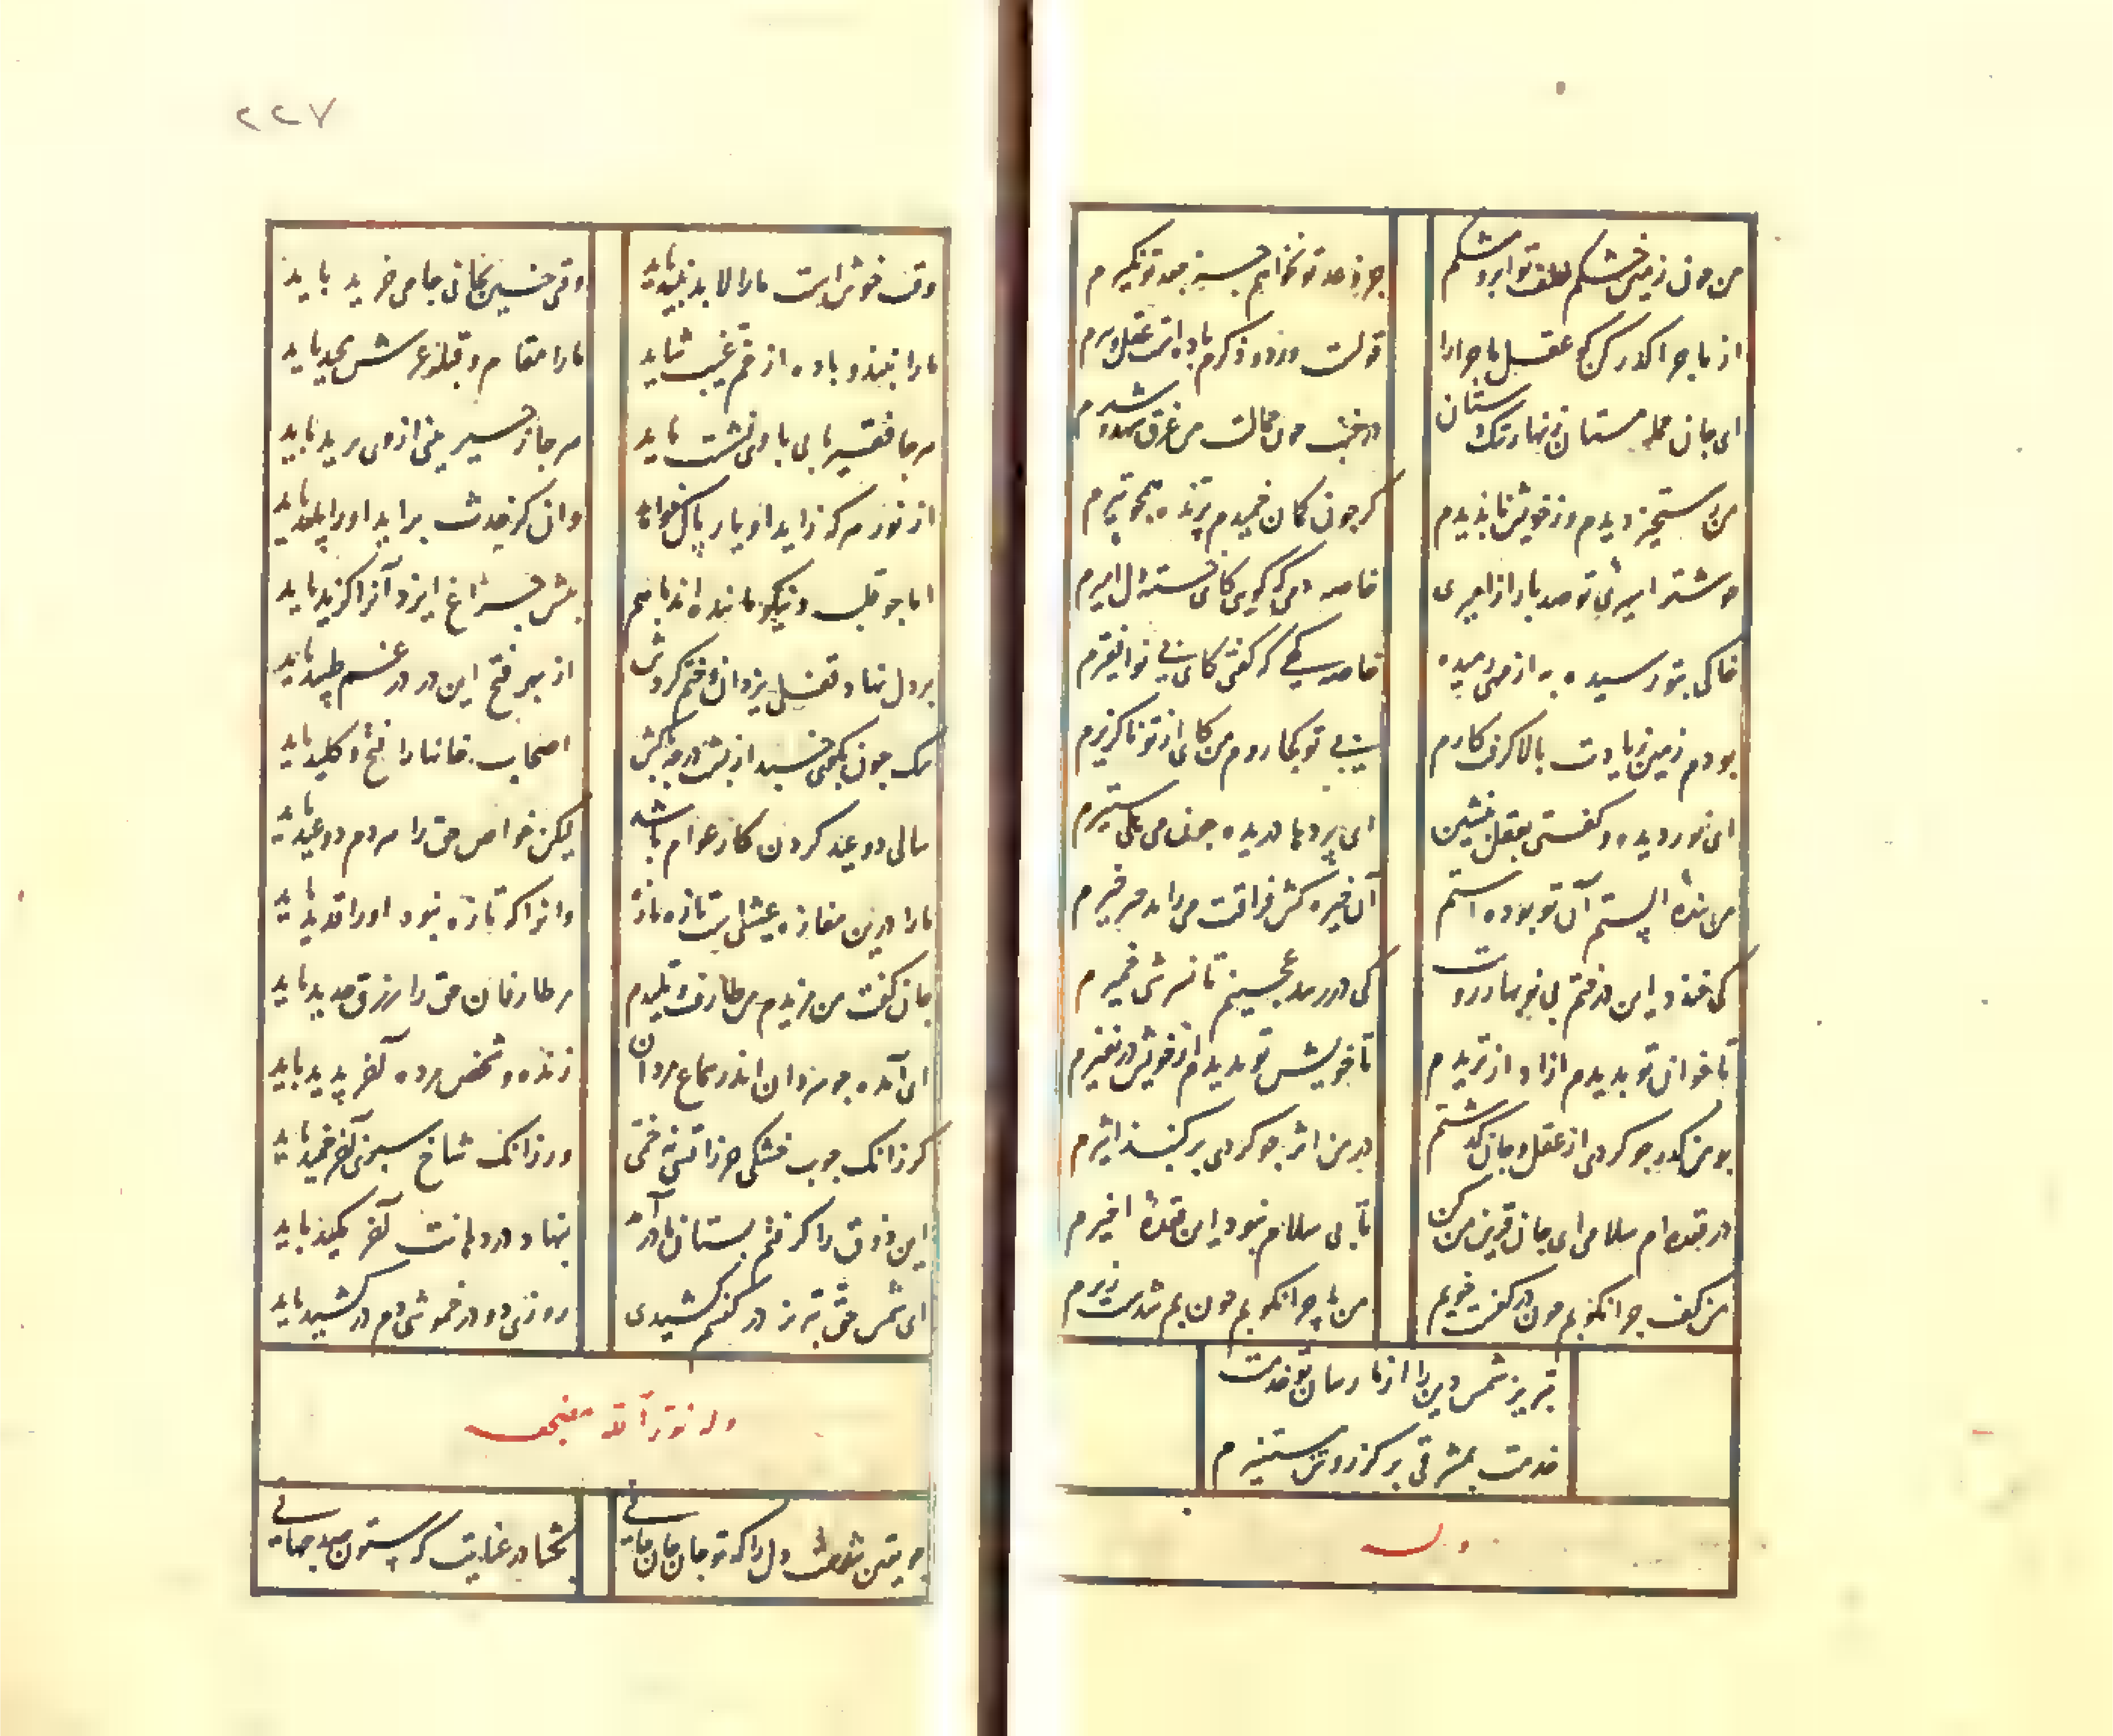 من چون زمین خشکم لطف تو ابر و مشکم
جز رعد تو نخواهم جز جعد تو نگیرم
از ماجرا گذر کن کو عقل ماجرا را
قولت درود و ذکرم باده است عقل و
ای جان جمله مستان زنهار
در من غرق شدم
من رستخیز دیدم وز خویش نابدیدم
کر چون کمان خمیدم پرنده همچو تیرم
خوشتر اسیری تو صد بار از امیری
خاصه دمی که گویی کای خسته دل اسیرم
خاکی بتو رسیده به از مهی رمیده
خاصه دمی که گفتی کای بی نوا فقیرم
بودم زمین زیادت بالا گرفت کارم
بی تو کجا روم من کای از تو ناگزیرم
ای نور دیده و گفتی بعقل بنشین
ای پردها دریده می ستیرم
من بنده الستم آن تو بوده استم
آن خیره کش فراقت می راند خیر خیرم
کی خندد این درختم بی نوبهار رویت
کی در رسد عجینم تا نسرشی خمیرم
تا خوان تو بدیدم ازاد از ثریدم
تا خویش تو بدیدم از خویش در نفیرم
بر من گذر چو کردی از عقل و جان گذشتم
در من اثر چو کردی بر کنبد اثیرم
در قعده ام سلامی ای جان گزین من کن
تا بی سلام نبود این قعده اخیرم
من کف چرا نکوبم چون در کف است خوبم
من پا چرا نکوبم چون بم شدست زیرم
تبریز شمس دین را از ما رسان تو خدمت
خدمت بمشرقی به کز روش مستنیرم
وله
۷۲۲
وقت خوش است ما را لابد نبید باید
وقتی چنین بجانی جامی خرید باید
ما را نبید و باده از خم غیب شاید
ما را مقام و قبله عرش مجید باید
هر جا فقیر یابی با وی نشست باید
هر جا زحیر بینی از وی برید باید
از نور هر که زاید او یار پاک خواند
وان کز حدث براید او را پلید باید
اما چو قلب و نیکو مانند اند با هم
پیش چراغ ایزد آنرا گزید باید
بر دل نهاد قفلی یزدان و ختم کردش
از بهر فتح این در در غم طپید باید
سگ چون بکوی خسپد از بیش در چه باکش
اصحاب خانها را فتح و کلید باید
سالی دو عید کردن کار عوام باشد
لیکن خواص حق را هر دم دو عید باید
ما را درین مفازه عیشی است تازه تازه
وانرا که تازه نبود او را قدید باید
جان گفت من مریدم هر طارف و تلیدم
مر طارفان حق را رزق جدید باید
ای آمده چو سردان اندر سماع مردان
زنده و شخص مرده آخر پدید باید
گر زانک چوب خشکی جز زاتشی نه خفتی
ور زانک شاخ سبزی آخر خمید باید
این ذوق را گرفتم پستان مادر آمد
بنهاد در دهانت آخر مکید باید
ای شمس حق تبریز در گفتم کشیدی
روزی دو در خموشی دم در کشید باید
وله نور الله مضجعه
چو یقین شدست دل را که تو جان جان جانی
بگشا در عنایت که ستون صد جهانی